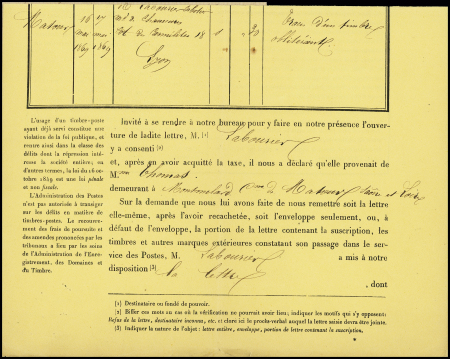 Matour
16 mai 1869
17 mai 1869
18
1
Lyon
L'usage d'un timbre-poste
ayant déjà servi constitue une
violation de la foi publique, et
rentre ainsi dans la classe des
délits dont la répression intéresse
la société entière; ou,
d'autres termes, la loi du 16 octobre
1849 est une loi pénale et
non fiscale.
L'Administration des Postes
n'est pas autorisée à transiger
sur les délits en matière de
timbres-poste. Le recouvrement
des frais de poursuite et
des amendes prononcées par les
tribunaux a lieu par les soins
de l'Administration de l'Enregistrement,
des Domaines et
du Timbre.
Invité à se rendre à notre bureau pour y faire en notre présence l'ouverture
de ladite lettre, M. (1) Labourier
y a consenti (2)
et, après en avoir acquitté la taxe, il nous a déclaré qu'elle provenait de
M. Thomas
demeurant à Matour
Sur la demande que nous lui avons faite de nous remettre soit la lettre
elle-même, après l'avoir recachetée, soit l'enveloppe seulement, ou, à
défaut de l'enveloppe, la portion de la lettre contenant la suscription, les
timbres et autres marques extérieures constatant son passage dans le service
des Postes, M. Labourier a mis à notre
disposition (3) La lettre
, dont
(1) Destinataire ou fondé de pouvoir.
(2) Biffer ces mots au cas où la vérification ne pourrait avoir lieu; indiquer les motifs qui s'y opposent:
Refus de la lettre, destinataire inconnu, etc. et clore ici le procès-verbal auquel la lettre saisie devra être jointe.
(3) Indiquer la nature de l'objet: lettre entière, enveloppe, portion de lettre contenant la suscription.